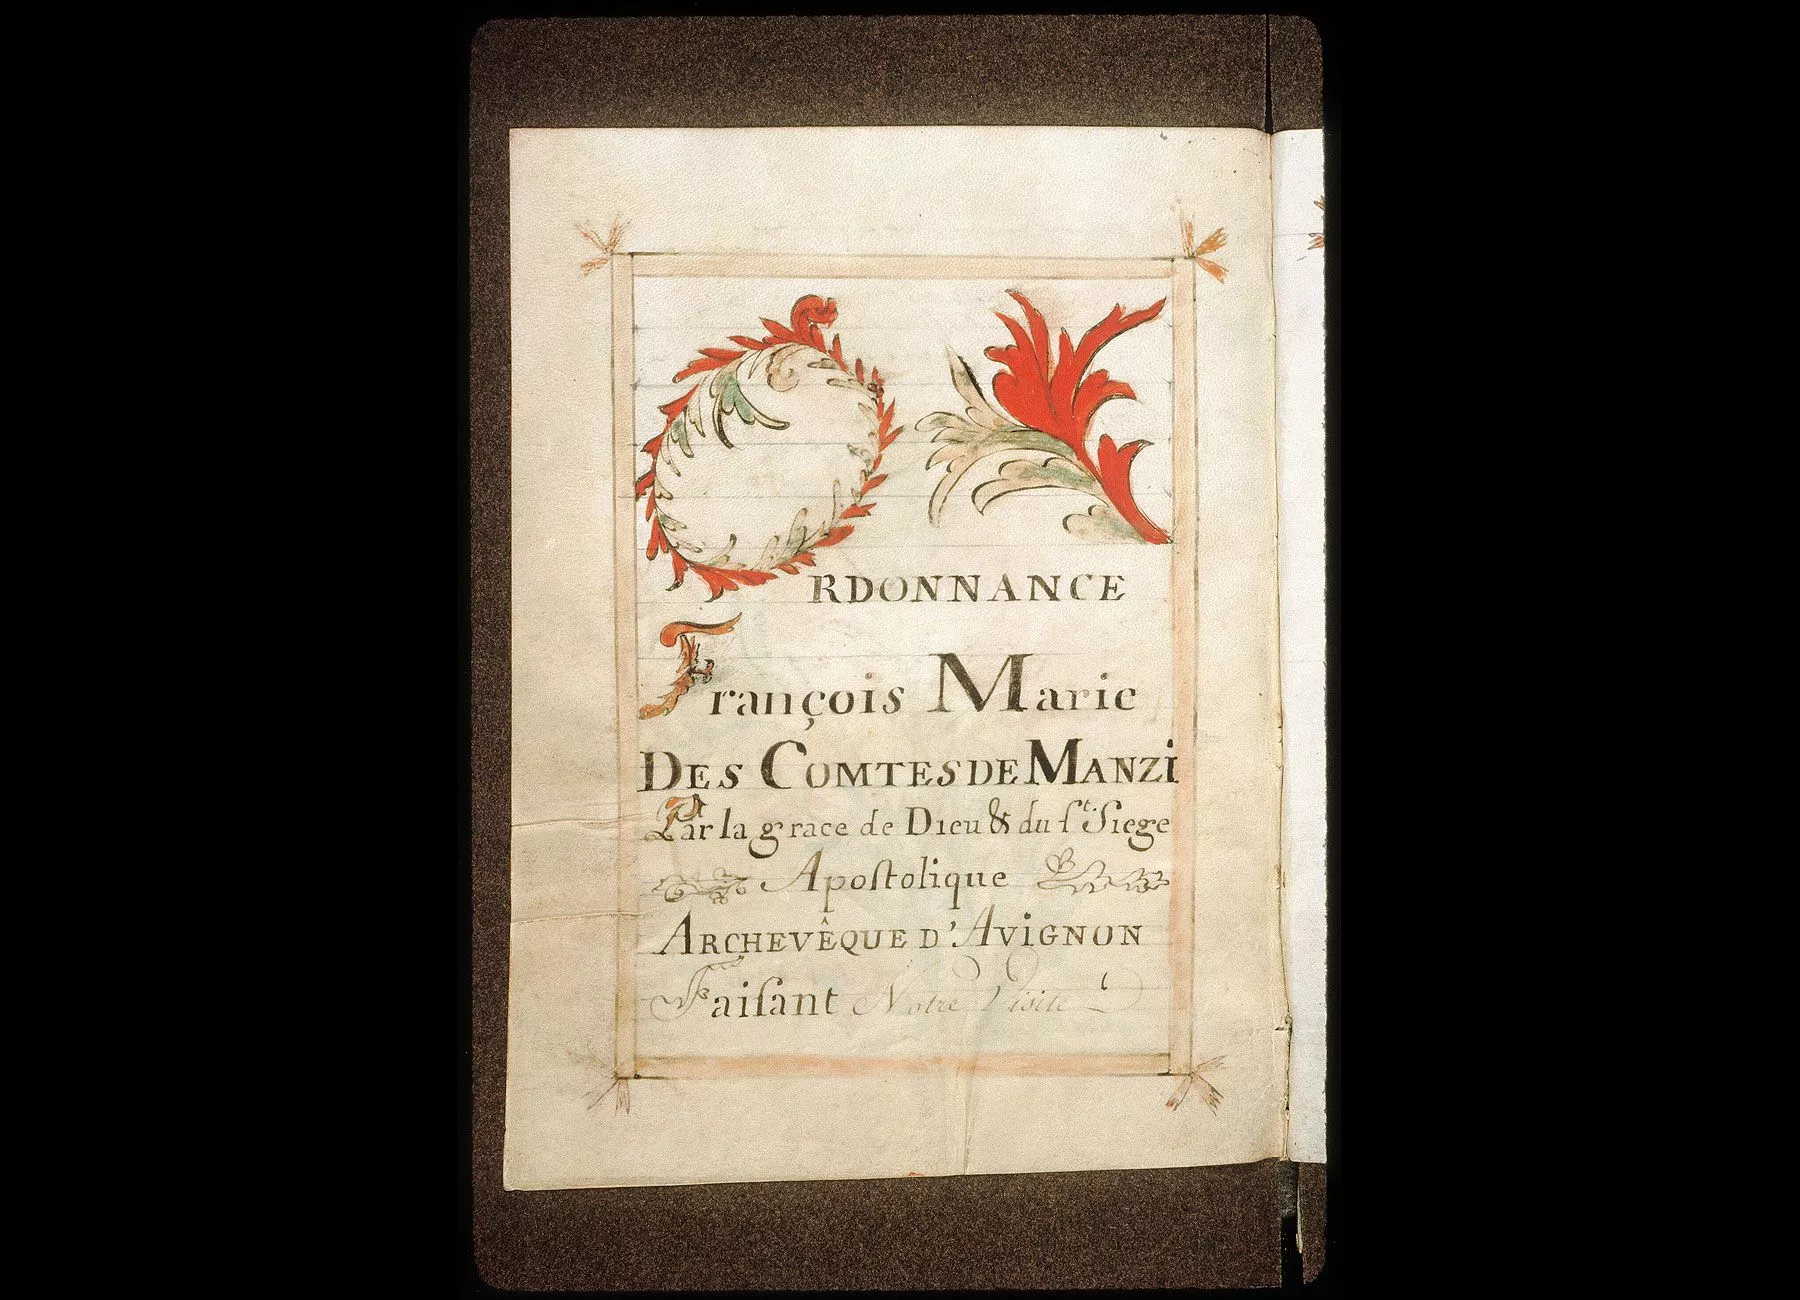 ORDONNANCE
François Marie
DES COMTES DE MANZI
Par la grace de Dieu & du ſt. Siege
Apoſtolique
ARCHEVÊQUE D'AVIGNON
Faiſant Notre Visite